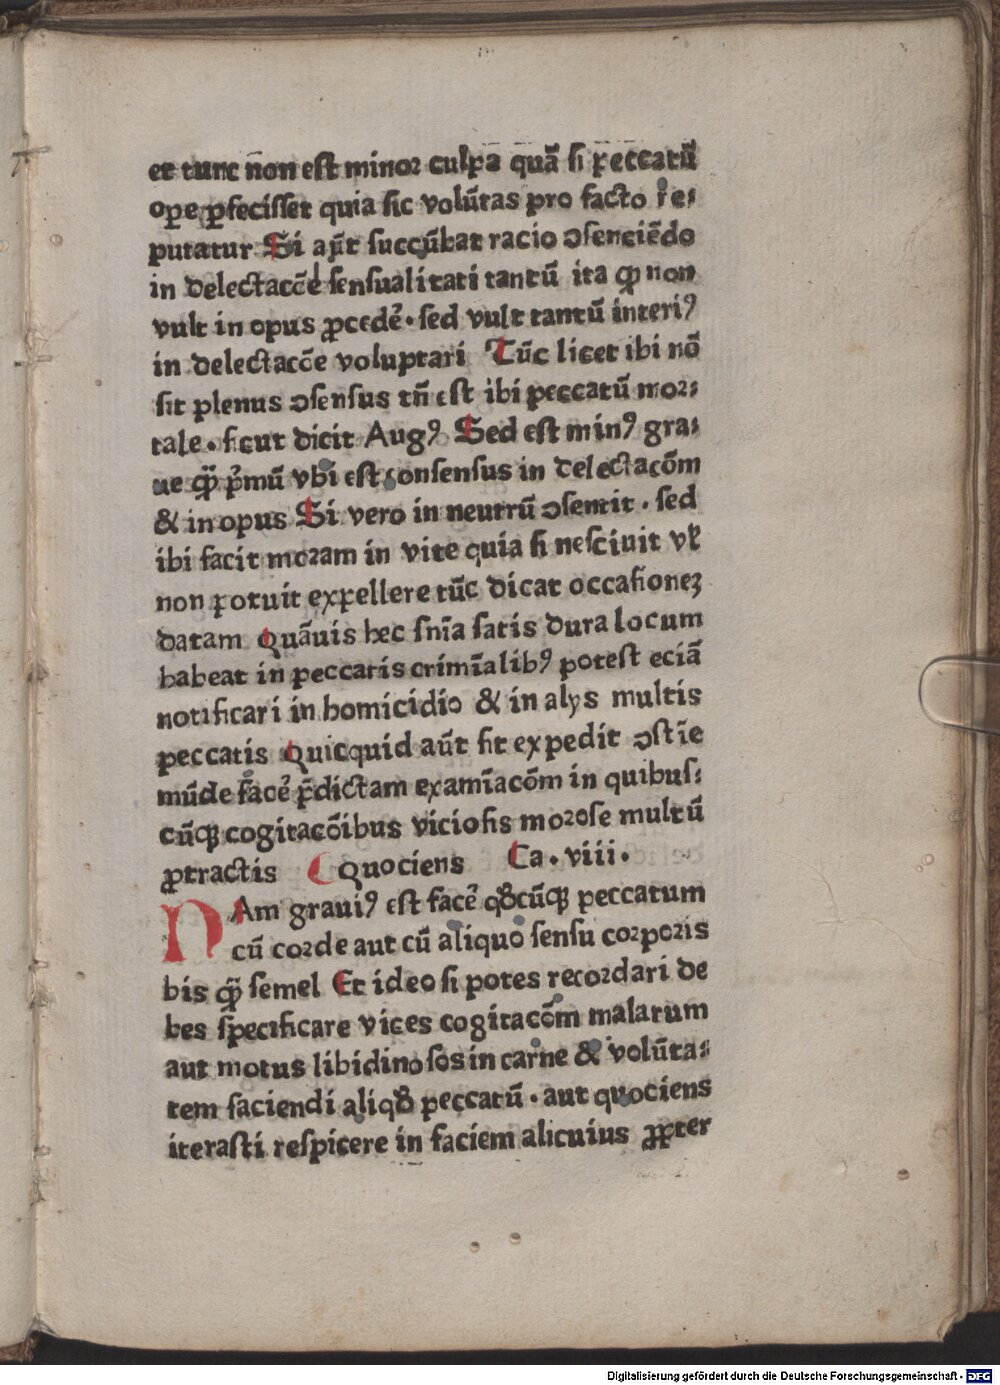 et tunc non est minoꝛ culpa quã si peccatũ
oꝑe ꝑfecisset quia sic volũtas pro facto re⸗
putatur Si aũt succũbat racio ↄsenciẽdo
in delectacõe sensualitati tantũ ita ꝙ non
vult in opus ꝓcedẽ · sed vult tantũ interiꝰ
in delectacõe voluptari Tũc licet ibi nõ
sit plenus ↄsensus tñ est ibi peccatũ moꝛ⸗
tale · sicut dicit Augꝰ Sed est minꝰ gra⸗
ue ꝙ̃ pͥmũ vbi est consensus in delectacõm
& in opus Si vero in neutrũ ↄsentit · sed
ibi facit moꝛam in vite quia si nesciuit vl̓
non potuit expellere tũc dicat occasioneꝫ
datam Quãuis hec snĩa satis dura locum
habeat in peccatis crimĩalibꝰ potest eciã
notificari in homicidio & in alys multis
peccatis Quicquid aũt sit expedit ↄstĩe
mũde facẽ p̃dictam examĩacõm in quibus⸗
cũqꝫ cogitacõibus viciosis moꝛose multũ
ꝓtractis Quociens Ca · viii ·
NAm grauiꝰ est facẽ qð cũqꝫ peccatum
cũ coꝛde aut cũ aliquo sensu coꝛpoꝛis
bis ꝙ̃ semel Et ideo si potes recoꝛdari de
bes specificare vices cogitacõm malarum
aut motus libidinosos in carne & volũta⸗
tem faciendi aliqð peccatũ · aut quociens
iterasti respicere in faciem alicuius ꝓpter
Digitalisierung gefördert durch die Deutsche Forschungsgemeinschaft - DFG